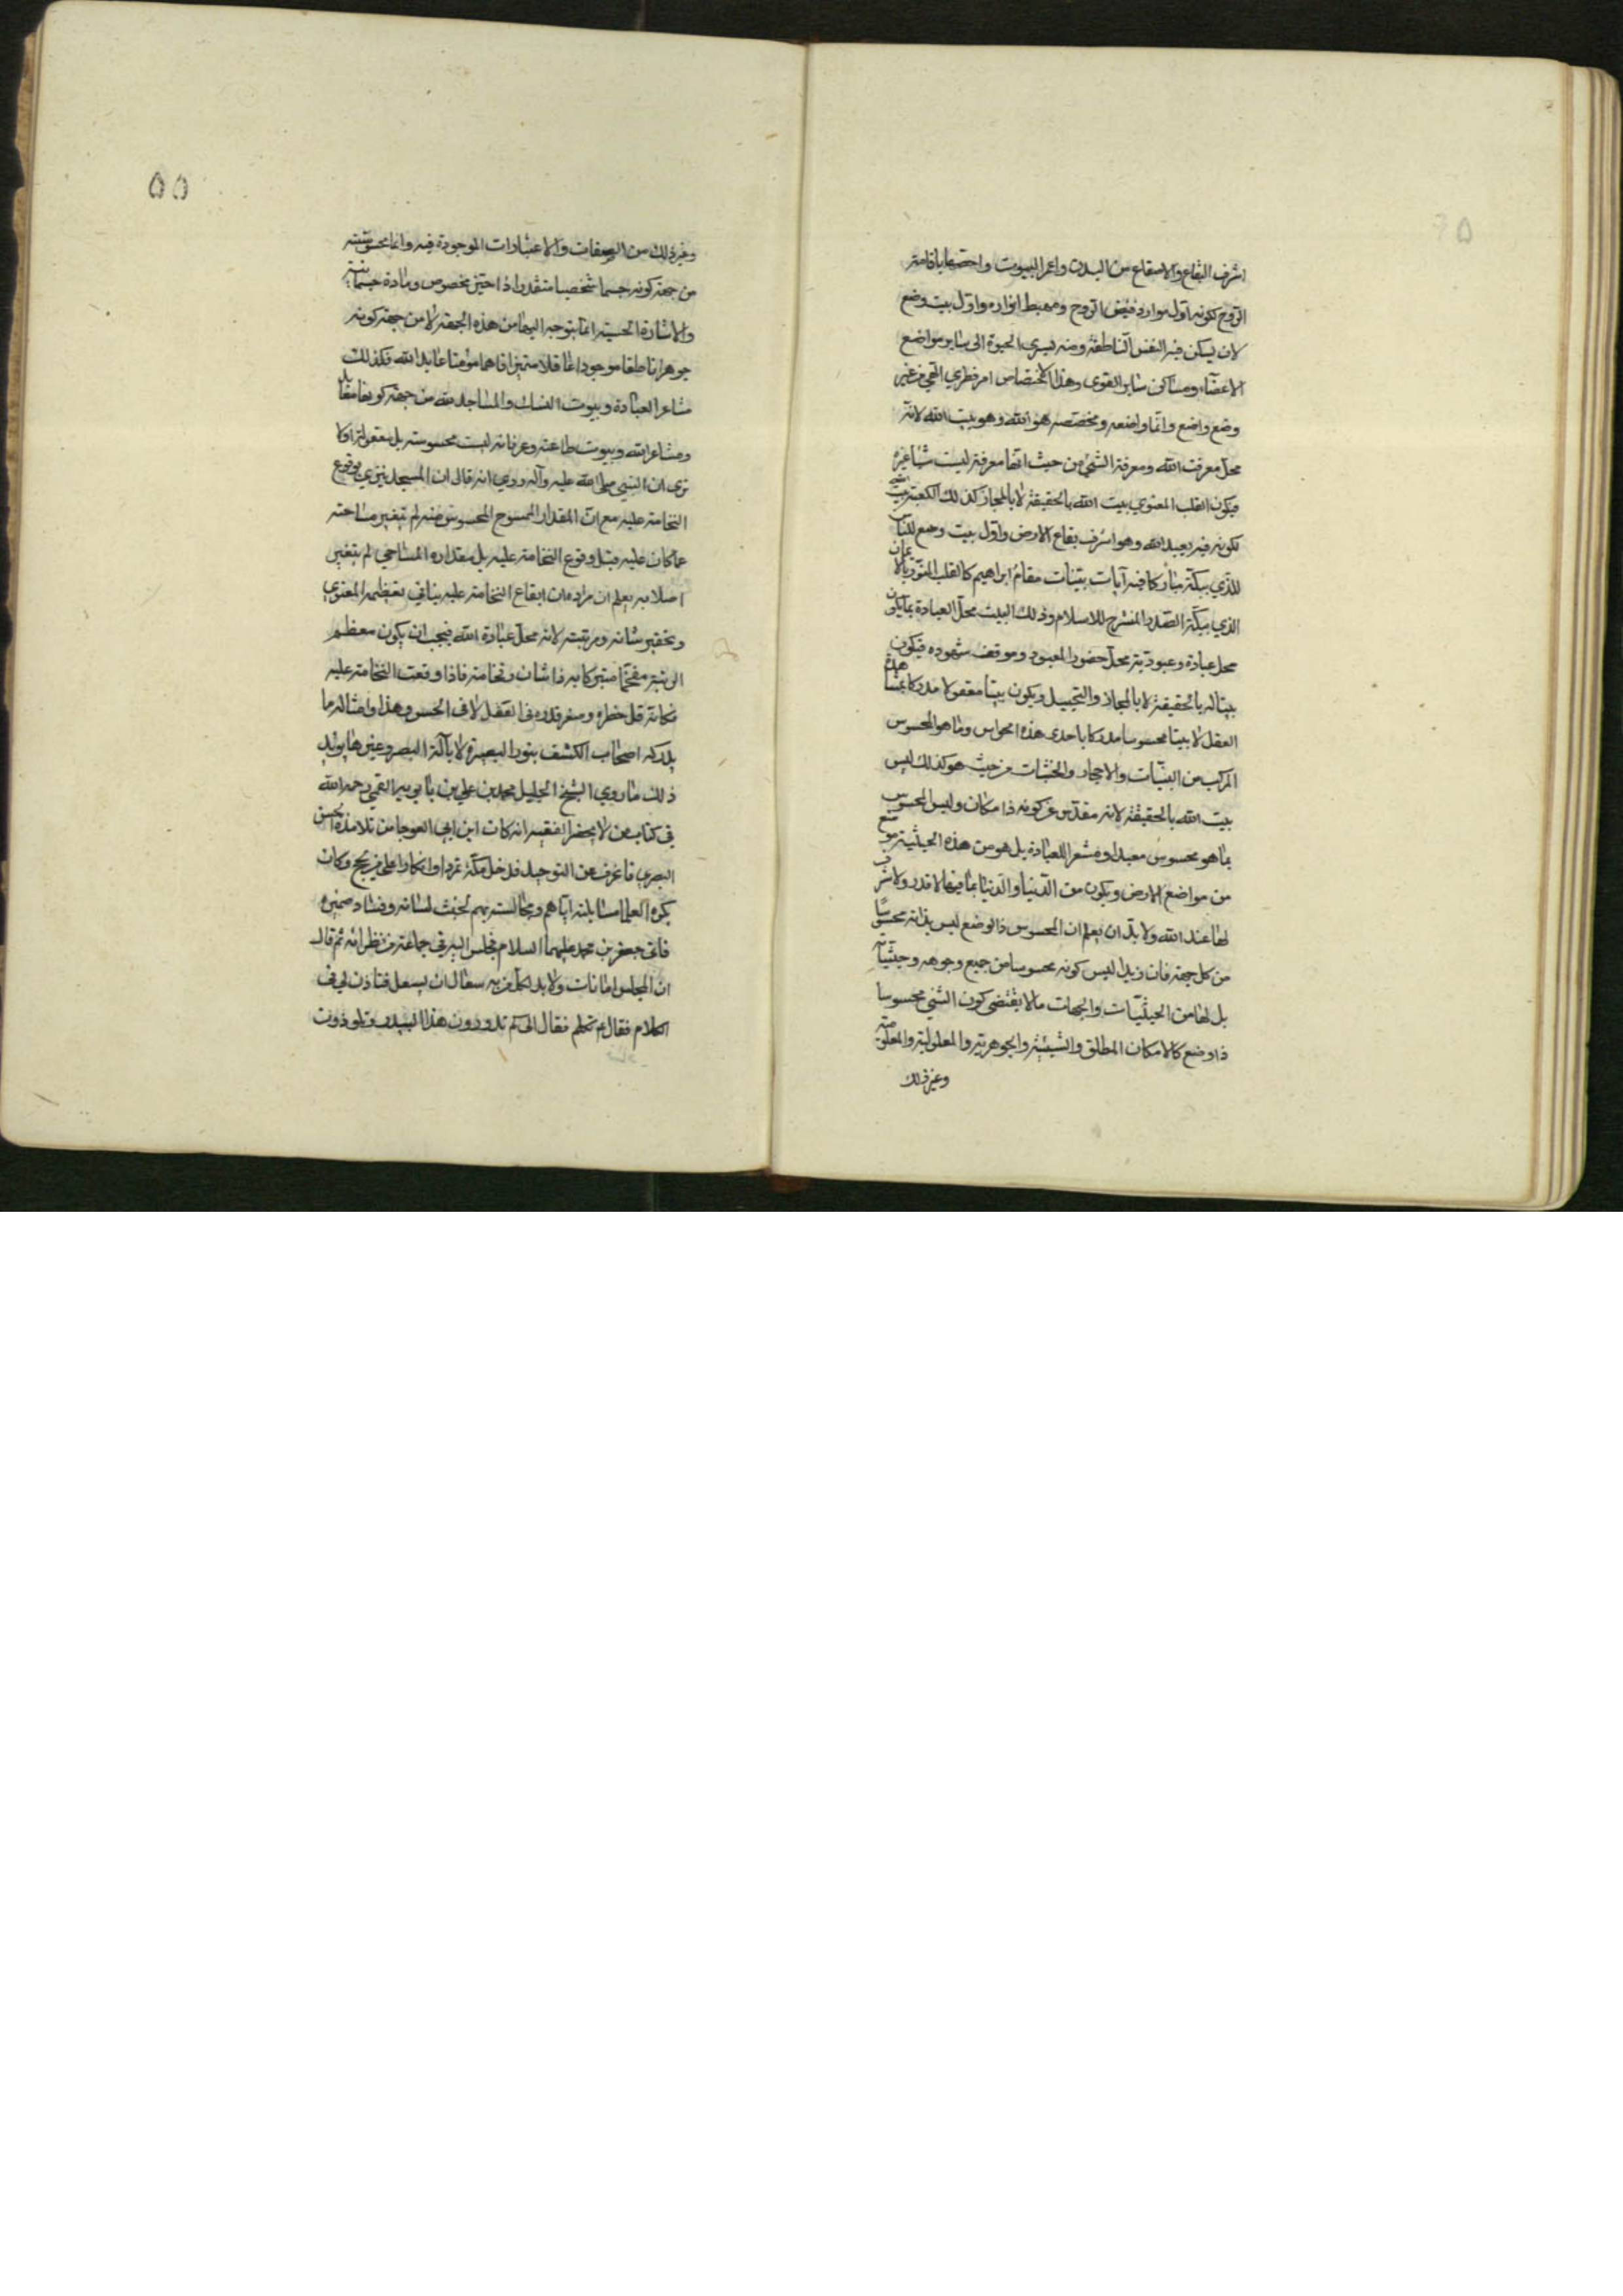 اشرف البقاع والاصقاع من البدن واعمر البيوت واخصها باقامة
الروح لكونه اول موارد فيض الروح ومهبط انواره واول بيت وضع
لان يسكن فيه النفس الناطقة ومنه يسري الحيوة الى ساير مواضع
الاعضاء ومساكن ساير القوى وهذا الاختصاص امر فطري الهي من غير
وضع واضع وانما واضعه ومخصصه هو الله وهو بيت الله لانه
محل معرفت الله ومعرفة الشئ من حيث انها معرفة ليست شيئا غيره
فيكون القلب المعنوي بيت الله بالحقيقة لا بالمجاز كذلك الكعبة بيت الله
لكونه فيه يعبد الله وهو اشرف بقاع الارض واول بيت وضع للناس
للذي ببكة مباركا فيه آيات بينات مقام ابراهيم كالقلب المنور بالايمان
الذي ببكة الصدر المنشرح للاسلام وذلك البيت محل العبادة بما يكون
محل عبادة وعبودية محل حضور المعبود وموقف شهوده فيكون
بيتا له بالحقيقة لا بالمجاز والتخييل ويكون بيتا معقولا مدركا بمشاهدة
العقل لا بيتا محسوسا مدركا باحدى هذه الحواس وما هو المحسوس
المركب من البنيات والاحجار والخشبات من حيث هو كذلك ليس
بيت الله بالحقيقة لانه مقدس عن كونه ذا مكان وليس المحسوس
بما هو محسوس معبدا ومشعرا للعبادة بل هو من هذه الحيثية موضع
من مواضع الارض ويكون من الدنيا والدنيا بما فيها لا قدر ولا شرف
لها عند الله ولا بد ان يعلم ان المحسوس ذا الوضع ليس بذاته محسوسا
من كل جهة فان زيدا ليس كونه محسوسا من جميع وجوهه وحيثياته
بل لها من الحيثيات والجهات ما لا يقتضي كون الشئ محسوسا
ذا وضع كالامكان المطلق والشيئية والجوهرية والمعلولية والمعلومية
وغير ذلك
٥٥
وغير ذلك من الصفات والاعتبارات الموجودة فيه وانما محسوسيته
من جهة كونه جسما شخصيا متقدرا ذا حيز مخصوص ومادة جسمانية
والاشارة الحسية انما يتوجه اليها من هذه الجهة لا من جهة كونه
جوهرا ناطقا موجودا عاقلا متميزا فاهما مؤمنا عابدا لله فكذلك
مشاعر العبادة وبيوت النسك والمساجد لله من جهة كونها معابد
ومشاعر الله وبيوت طاعته وعرفانه ليست محسوسة بل معقولة اولا
ترى ان النبي صلى الله عليه وآله روي انه قال ان المسجد ينزوي بوقوع
النخامة عليه مع ان المقدار الممسوح المحسوس منه لم يتغير مساحته
عما كان عليه قبل وقوع النخامة عليه بل مقداره المساحي لم يتغير
اصلا به يعلم ان مراده ان ايقاع النخامة عليه ينافي تعظيمه المعنوي
وتحقير شانه ومرتبته لانه محل عبادة الله فيجب ان يكون معظم
الرتبة مفخما متبركا به ذا شان وفخامة فاذا وقعت النخامة عليه
فكانه قل خطره وصغر قدره في العقل لا في الحس وهذا وامثاله مما
يدركه اصحاب الكشف بنور البصيرة لا بآلة البصر وغيرها يؤيد
ذلك ما روي الشيخ الجليل محمد بن علي بن بابويه القمي رحمه الله
في كتاب من لا يحضر الفقيه انه كان ابن ابي العوجا من تلامذة الحسن
البصري فانحرف عن التوحيد فدخل مكة تمردا وانكارا على من يحج وكان
يكره العلما مسايلته اياهم ومجالسته بهم لخبث لسانه وفساد ضميره
فاتى جعفر بن محمد عليهما السلام فجلس اليه في جماعة من نظرائه ثم قال
ان المجلس امانات ولا بد لكل من به سعال ان يسعل فتاذن لي في
الكلام فقال ع تكلم فقال الى كم تدورون هذا البيدر وتلوذون